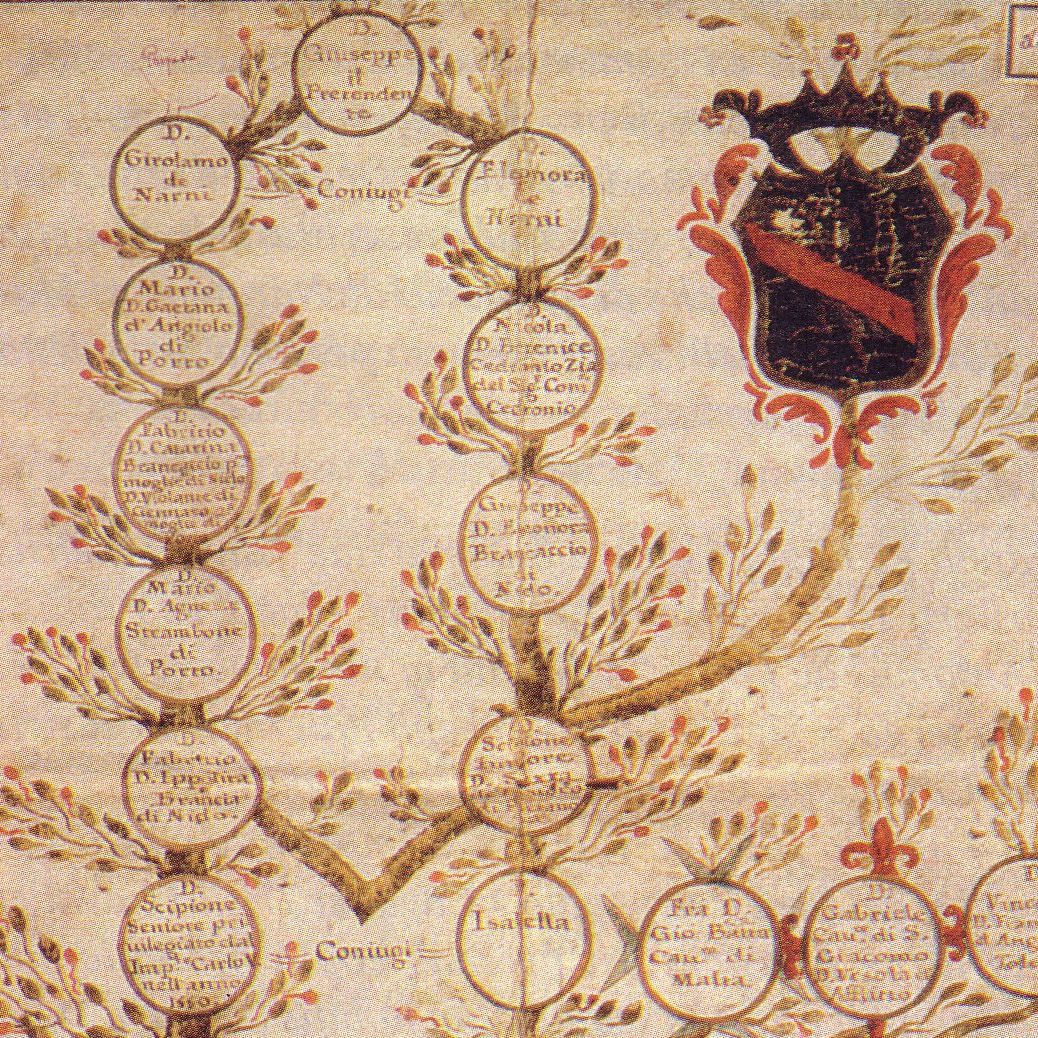 D.
Giuseppe
il
Pretenden
te
D.
Girolamo
de
Narni
Coniugi
D.
Eleonora
de
Narni
D.
Mario
D. Gaetana
d'Angiolo
di
Porto
D.
Nicola
D. Berenice
Cedronio Zia
del Sig. Con.
Cedronio
D.
Fabritio
D. Catarina
Brancaccio p.
moglie di Nido
D. Violante di
Gennaro 2.
moglie
D.
Giuseppe
D. Eleonora
Brancaccio
di
Nido.
D.
Mario
D. Agnesa
Strambone
di
Porto.
D.
Fabritio
D. Ippolita
Brancia
di Nido.
Scipione
Juniore
D.
D.
Scipione
Seniore pri
uilegiato dal
Imp.re Carlo V
nell'anno
1550.
Coniugi
Isabella
Frà D.
Gio Batta
Cau.re di
Malta.
D.
Gabriele
Cau.re di S.
Giacomo
D. Ursola d
Afflitto
D
Vinc
D. Fran
d'Ang
Tole